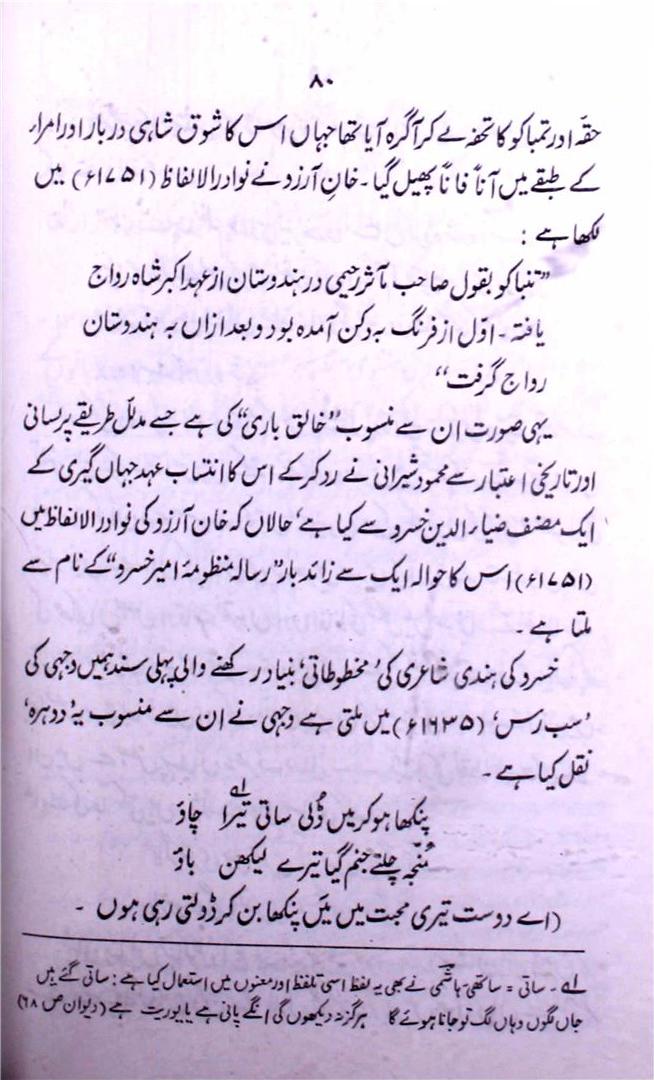 ۸۰
حقہ اور تمباکو کا تحفہ لے کر آگرہ آیا تھا جہاں اس کا شوق شاہی دربار اور امراء
کے طبقے میں آناً فاناً پھیل گیا۔ خانِ آرزو نے نوادر الالفاظ (۱۷۵۱ء) میں
لکھا ہے :
”تنباکو بقول صاحب مآثرِ رحیمی در ہندوستان از عہد اکبر شاہ رواج
یافتہ۔ اوّل از فرنگ بہ دکن آمدہ بود و بعد ازاں بہ ہندوستان
رواج گرفت“
یہی صورت ان سے منسوب ”خالق باری“ کی ہے جسے مدلّل طریقے پر لسانی
اور تاریخی اعتبار سے محمود شیرانی نے رد کر کے اس کا انتساب عہد جہاں گیری کے
ایک مصنف ضیاء الدین خسرو سے کیا ہے، حالاں کہ خان آرزو کی نوادر الالفاظ میں
(۱۷۵۱ء) اس کا حوالہ ایک سے زائد بار ”رسالہ منظومۂ امیر خسرو“ کے نام سے
ملتا ہے۔
خسرو کی ہندی شاعری کی ’مخطوطاتی‘ بنیاد رکھنے والی پہلی سند ہمیں وجہی کی
’سب رس‘ (۱۶۳۵ء) میں ملتی ہے وجہی نے ان سے منسوب یہ ’دوہرہ‘
نقل کیا ہے۔
پنکھا ہو کر میں ڈُلی ساتی تیرا چاؤ
مُنجہ جلتے جنم گیا تیرے لیکھن باؤ
(اے دوست تیری محبت میں میں پنکھا بن کر ڈولتی رہی ہوں۔
لے۔ ساتی = ساتھی۔ ہاشمی نے بھی یہ لفظ اسی تلفظ اور معنوں میں استعمال کیا ہے : ساتی گئے ہیں
جاں لگوں وہاں لگ تو جانا ہوئے گا ہرگز نہ دیکھوں گی انگے پانی ہے یا پوریت ہے (دیوان ص ۶۸)